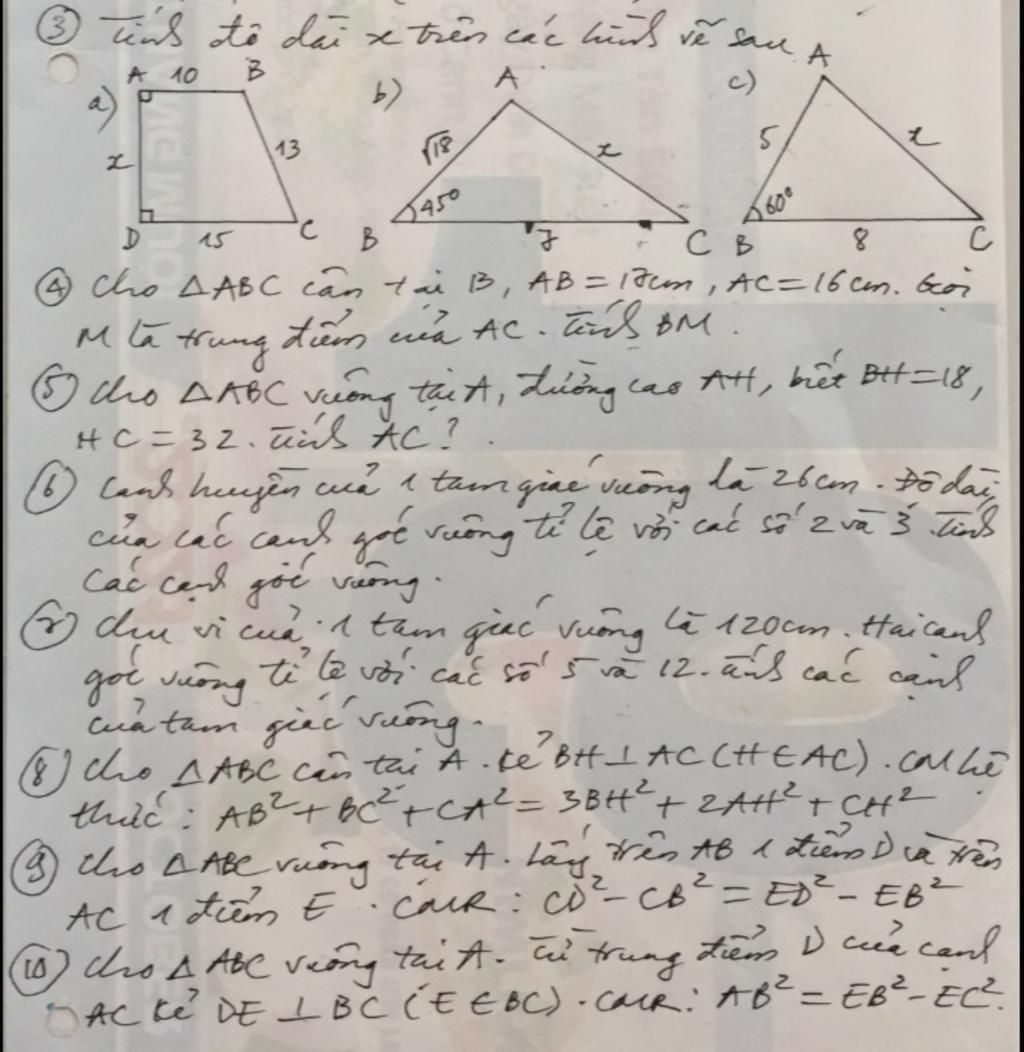 ③ Tính độ dài x trên các hình vẽ sau
a) A 10 B x 13 D 15 C
b) A √18 x 45° B 7 C
c) A 5 x 60° B 8 C
④ Cho △ABC cân tại B, AB = 17cm, AC = 16cm. Gọi
M là trung điểm của AC. Tính BM.
⑤ Cho △ABC vuông tại A, đường cao AH, biết BH = 18,
HC = 32. Tính AC?.
⑥ Cạnh huyền của 1 tam giác vuông là 26cm. Độ dài
của các cạnh góc vuông tỉ lệ với các số 2 và 3. Tính
các cạnh góc vuông.
⑦ Chu vi của 1 tam giác vuông là 120cm. Hai cạnh
góc vuông tỉ lệ với các số 5 và 12. Tính các cạnh
của tam giác vuông.
⑧ Cho △ABC cân tại A. Kẻ BH ⊥ AC (H ∈ AC). CM hệ
thức: AB² + BC² + CA² = 3BH² + 2AH² + CH²
⑨ Cho △ABC vuông tại A. Lấy trên AB 1 điểm D và trên
AC 1 điểm E. CMR: CD² - CB² = ED² - EB²
⑩ Cho △ABC vuông tại A. Từ trung điểm D của cạnh
AC kẻ DE ⊥ BC (E ∈ BC). CMR: AB² = EB² - EC².